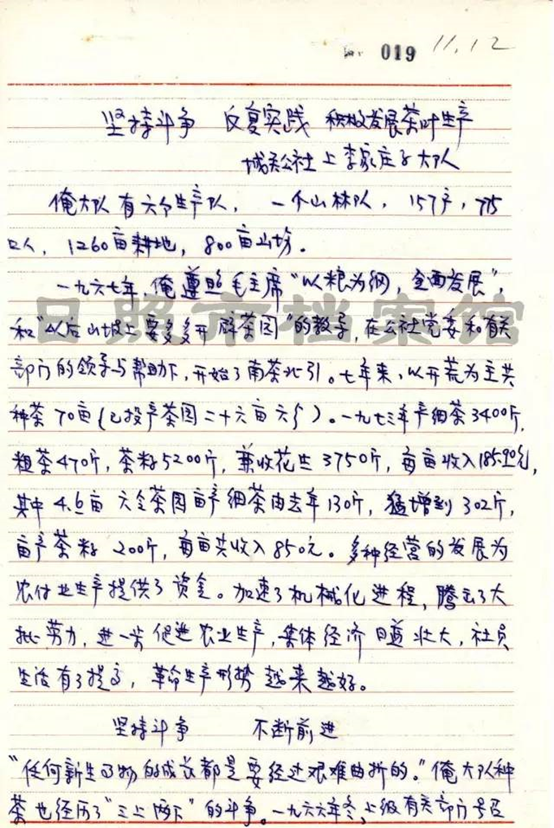 019 11.12
坚持斗争 反复实践 积极发展茶叶生产
城关公社上李家庄子大队
俺大队有六个生产队，一个山林队，157户，775
口人，1260亩耕地，800亩山场。
一九六七年，俺遵照毛主席“以粮为纲，全面发展”，
和“以后山坡上要多多开辟茶园”的教导，在公社党委和有关
部门的领导与帮助下，开始了南茶北引。七年来，以开荒为主共
种茶70亩(已投产茶园二十六亩六分)。一九七三年产细茶3400斤，
粗茶470斤，茶籽5200斤，兼收花生3750斤，每亩收入185.90元，
其中4.6亩六仝茶园亩产细茶由去年130斤，猛增到302斤，
亩产茶籽200斤，每亩共收入850元。多种经营的发展为
农付业生产提供了资金。加速了机械化进程，腾出了大
批劳力，进一步促进农业生产，集体经济日益壮大，社员
生活有了提高，革命生产形势越来越好。
坚持斗争 不断前进
“任何新生事物的成长都是要经过艰难曲折的。”俺大队种
茶也经历了“三上两下”的斗争。一九六六年冬，上级有关部门号召
日照市档案馆